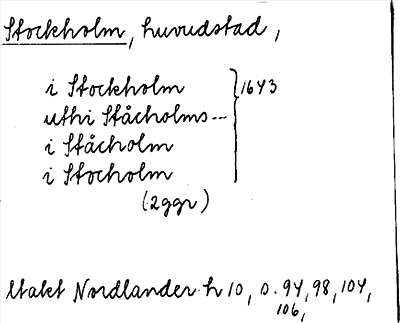 Stockholm, huvudstad,
i Stockholm
uthi Ståcholms--
i Ståcholm
i Stocholm
} 1643
(2ggr)
Nordlander h 10, s. 94, 98, 104,
106,